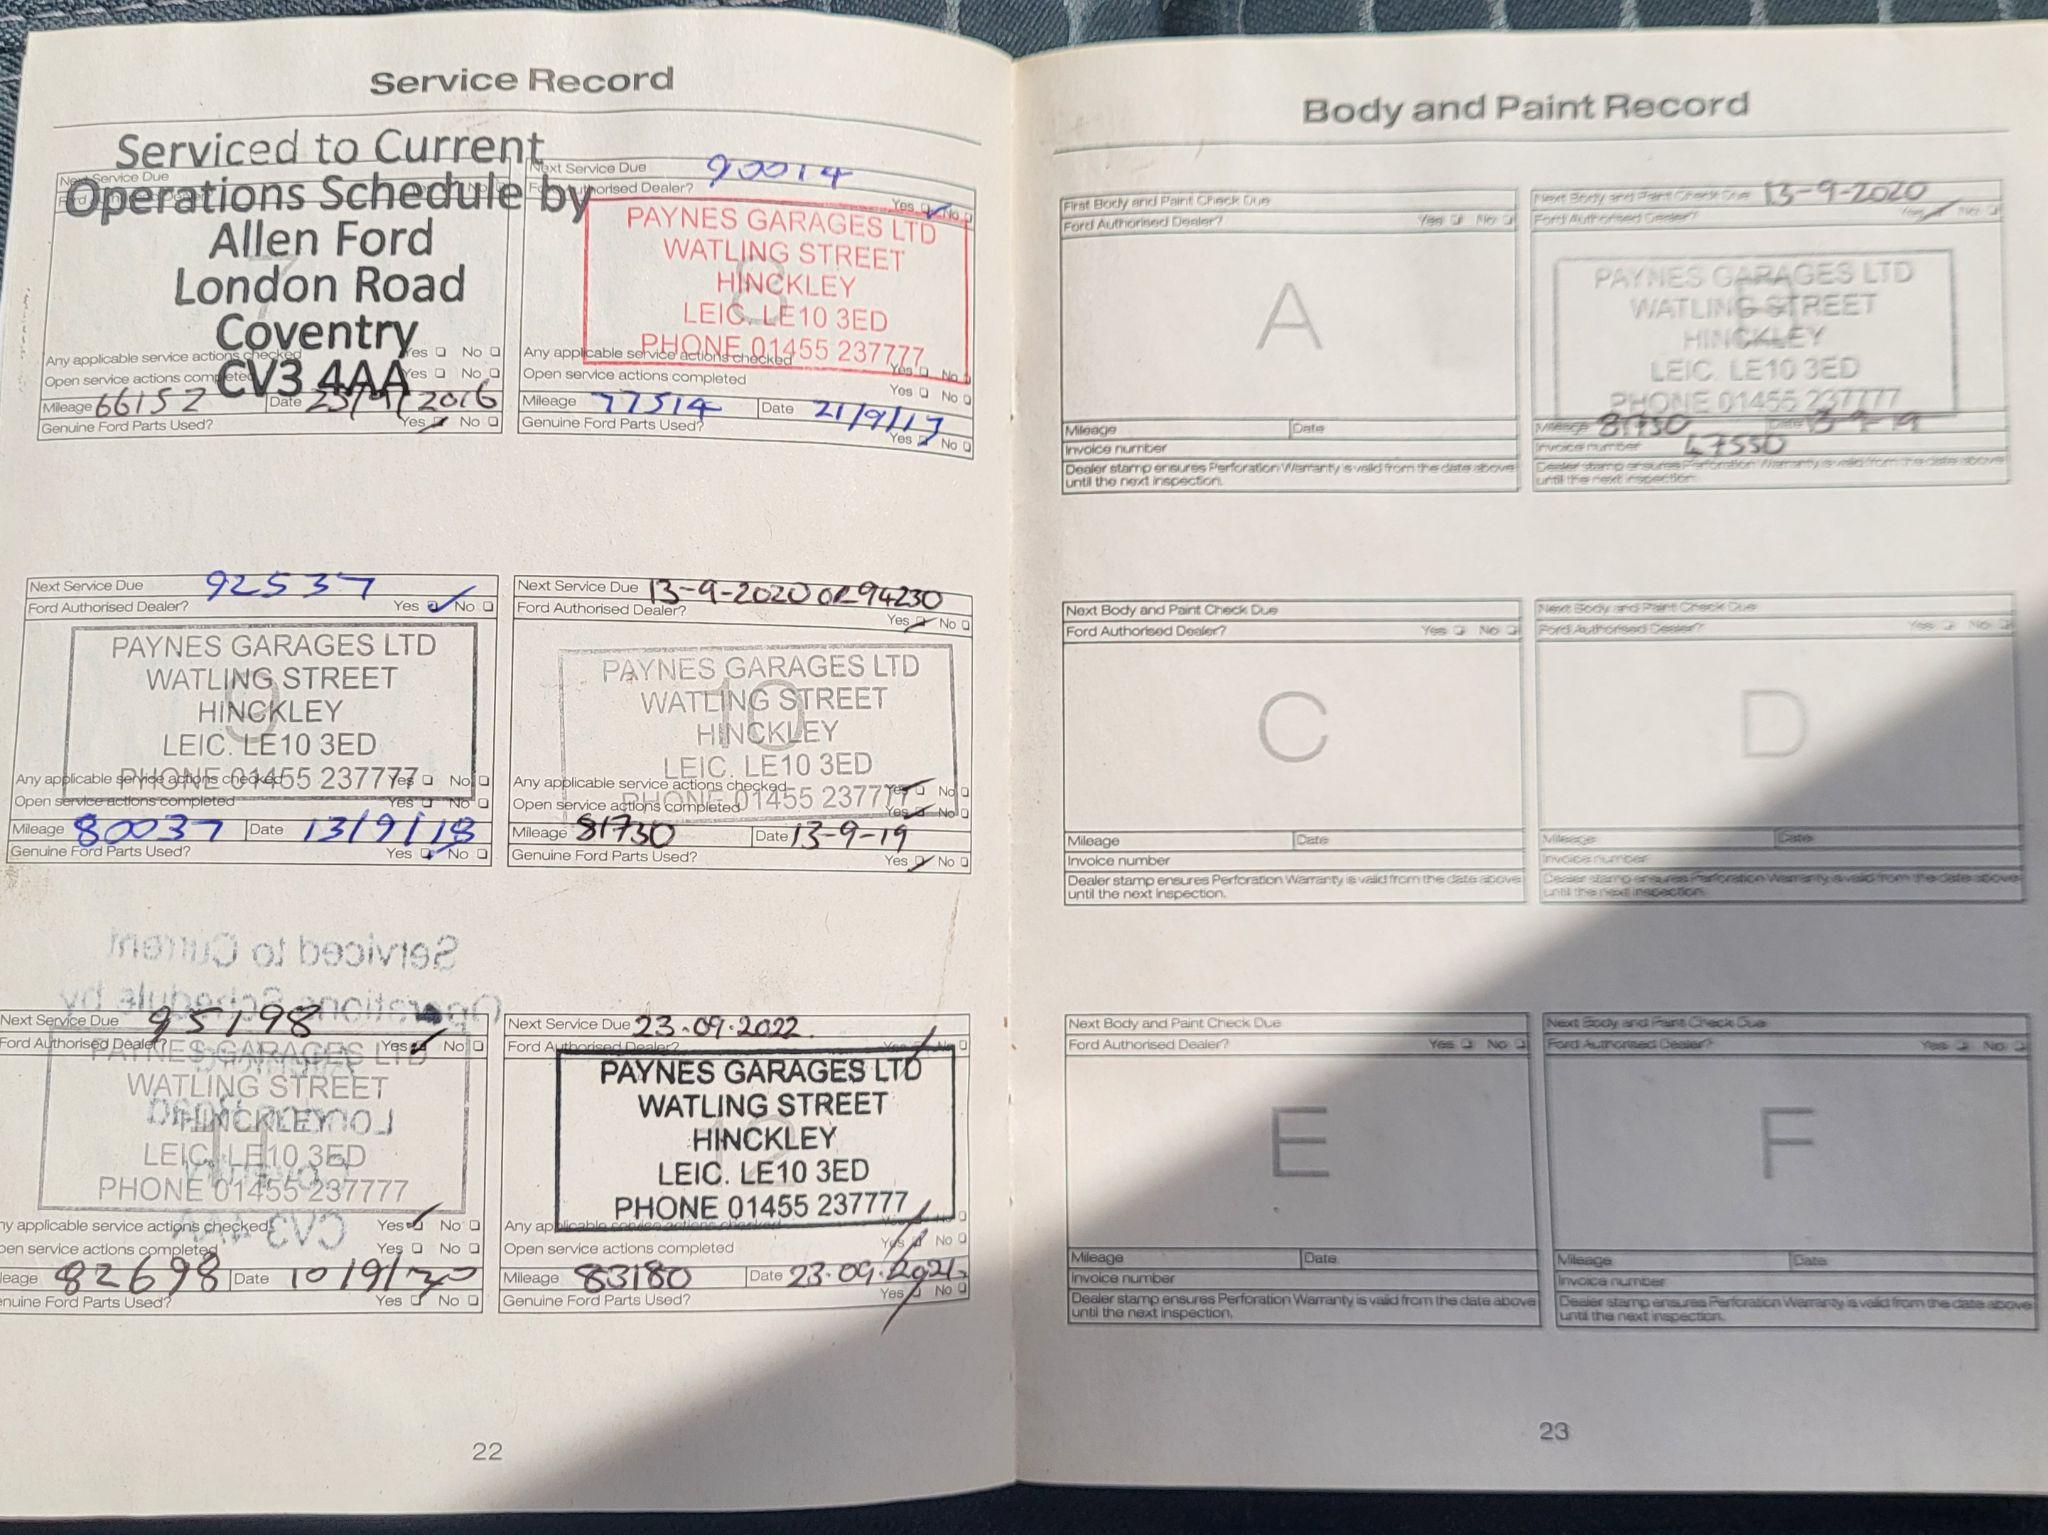 Service Record
Serviced to Current
Operations Schedule by
Allen Ford
London Road
Coventry
CV3 4AA
Next Service Due
7
Any applicable service actions checked Yes No
Open service actions completed Yes No
Mileage 66152 Date 2016
Genuine Ford Parts Used? Yes No
Next Service Due 90014
Ford Authorised Dealer? Yes No
PAYNES GARAGES LTD
WATLING STREET
8
HINCKLEY
LEIC. LE10 3ED
PHONE 01455 237777
Any applicable service actions checked Yes No
Open service actions completed Yes No
Mileage 77514 Date 21/9/17
Genuine Ford Parts Used? Yes No
Next Service Due 92537
Ford Authorised Dealer? Yes No
PAYNES GARAGES LTD
WATLING STREET
9
HINCKLEY
LEIC. LE10 3ED
PHONE 01455 237777
Any applicable service actions checked Yes No
Open service actions completed Yes No
Mileage 80037 Date 13/9/18
Genuine Ford Parts Used? Yes No
Next Service Due 13-9-2020 OR 94230
Ford Authorised Dealer? Yes No
PAYNES GARAGES LTD
WATLING STREET
10
HINCKLEY
LEIC. LE10 3ED
PHONE 01455 237777
Any applicable service actions checked Yes No
Open service actions completed Yes No
Mileage 81730 Date 13-9-19
Genuine Ford Parts Used? Yes No
Serviced to Current
Operations Schedule by
London Road
Coventry
CV3 4AA
Next Service Due 95198
Ford Authorised Dealer? Yes No
PAYNES GARAGES LTD
WATLING STREET
HINCKLEY
11
LEIC. LE10 3ED
PHONE 01455 237777
ny applicable service actions checked Yes No
pen service actions completed Yes No
leage 82698 Date 10/9/20
enuine Ford Parts Used? Yes No
Next Service Due 23.09.2022
Ford Authorised Dealer? Yes No
PAYNES GARAGES LTD
WATLING STREET
12
HINCKLEY
LEIC. LE10 3ED
PHONE 01455 237777
Any applicable service actions checked Yes No
Open service actions completed Yes No
Mileage 83180 Date 23.09.2021
Genuine Ford Parts Used? Yes No
22
Body and Paint Record
First Body and Paint Check Due
Ford Authorised Dealer? Yes No
A
Mileage Date
Invoice number
Dealer stamp ensures Perforation Warranty is valid from the date above
until the next inspection.
Next Body and Paint Check Due 13-9-2020
Ford Authorised Dealer? Yes No
PAYNES GARAGES LTD
WATLING STREET
HINCKLEY
LEIC. LE10 3ED
PHONE 01455 237777
Mileage 81730 Date 13-9-19
Invoice number 47550
Dealer stamp ensures Perforation Warranty is valid from the date above
until the next inspection.
Next Body and Paint Check Due
Ford Authorised Dealer? Yes No
C
Mileage Date
Invoice number
Dealer stamp ensures Perforation Warranty is valid from the date above
until the next inspection.
Next Body and Paint Check Due
Ford Authorised Dealer? Yes No
D
Mileage Date
Invoice number
Dealer stamp ensures Perforation Warranty is valid from the date above
until the next inspection.
Next Body and Paint Check Due
Ford Authorised Dealer? Yes No
E
Mileage Date
Invoice number
Dealer stamp ensures Perforation Warranty is valid from the date above
until the next inspection.
Next Body and Paint Check Due
Ford Authorised Dealer? Yes No
F
Mileage Date
Invoice number
Dealer stamp ensures Perforation Warranty is valid from the date above
until the next inspection.
23